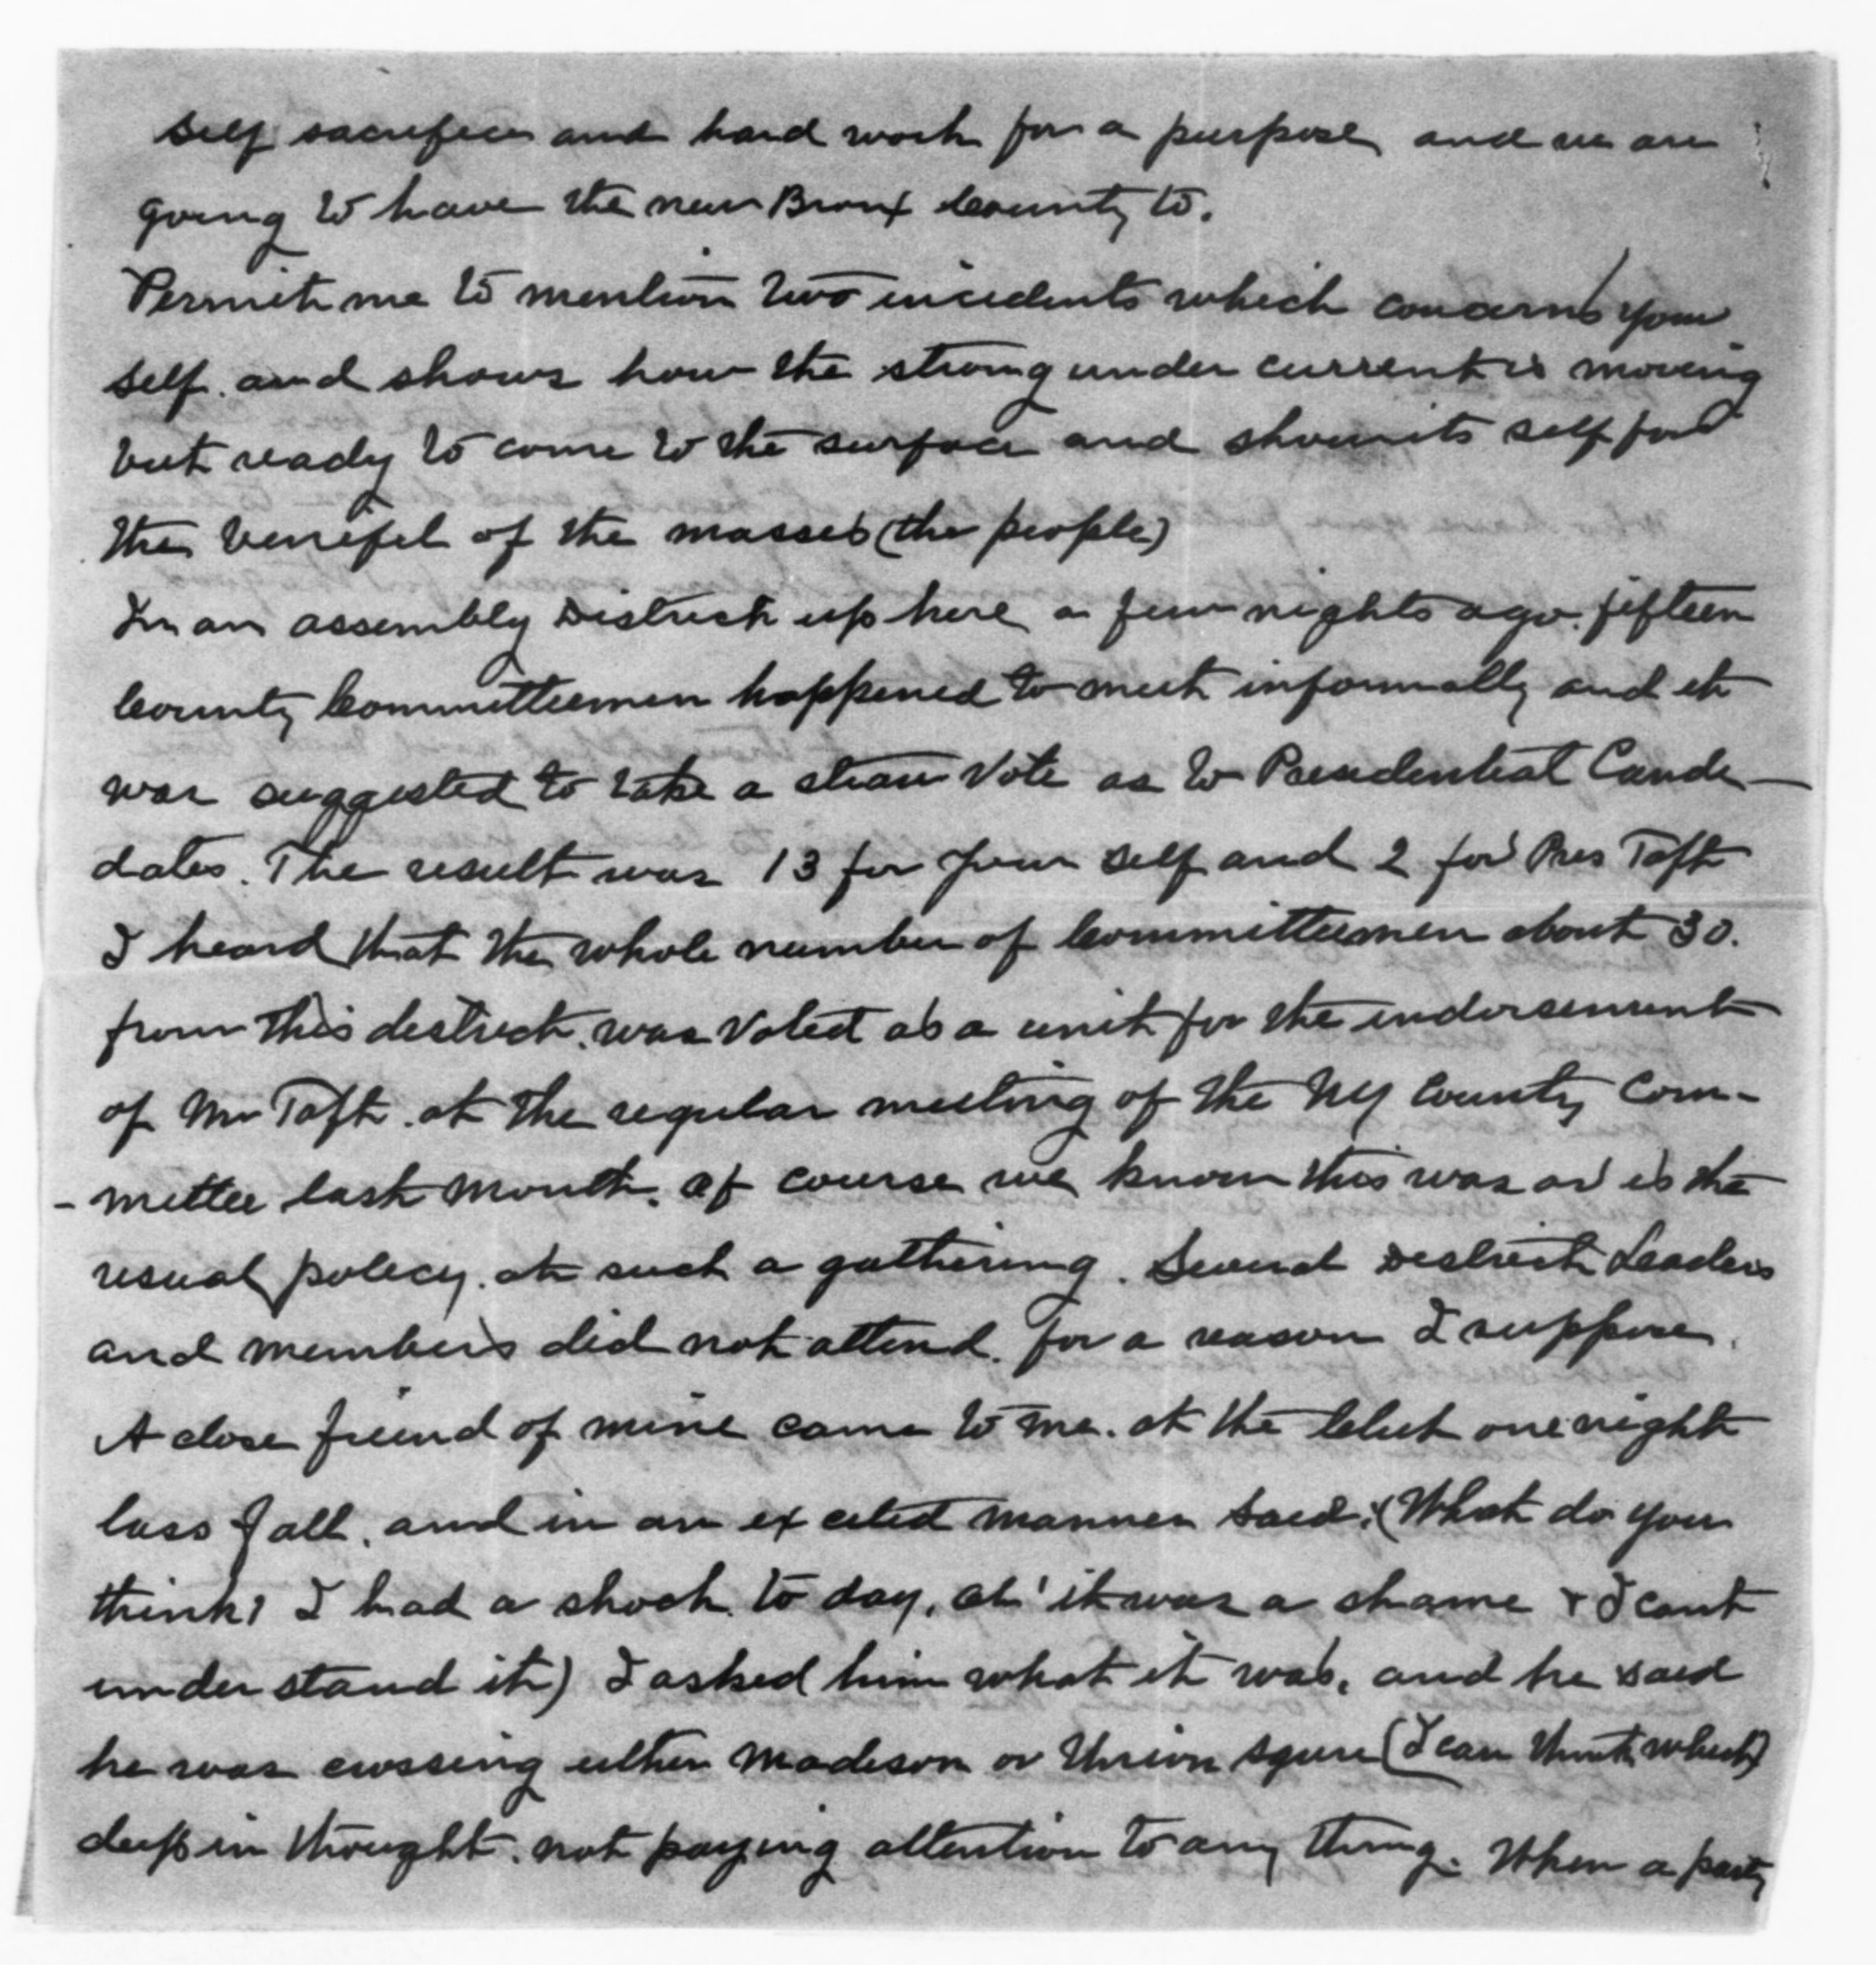 self sacrifice and hard work for a purpose and we are
going to have the new Bronx County to.
Permit me to mention two incidents which concerns your
self. and shows how the strong under current is moving
but ready to come to the surface and show its self for
the benefit of the masses (the people)
In an assembly District up here a few nights ago. fifteen
County Committeemen happened to meet informally and it
was suggested to take a straw vote as to Presidential Candi-
dates. The result was 13 for your self and 2 for Pres Taft
I heard that the whole number of Committeemen about 30.
from this district. was voted as a unit for the endorsement
of Mr Taft. at the regular meeting of the NY County Com-
-mittee last month. of course we know this was or is the
usual policy. at such a gathering. Several District Leaders
and members did not attend. for a reason I suppose.
A close friend of mine came to me. at the Club one night
lass fall. and in an excited manner said. (What do you
think? I had a shock to day, oh! it was a shame & I cant
under stand it) I asked him what it was, and he said
he was crossing either Madison or Union Squre (I can think which)
deep in thought. not paying attention to any thing. When a party